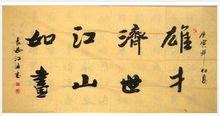 庚寅年
雄才
濟世
江山
如畫